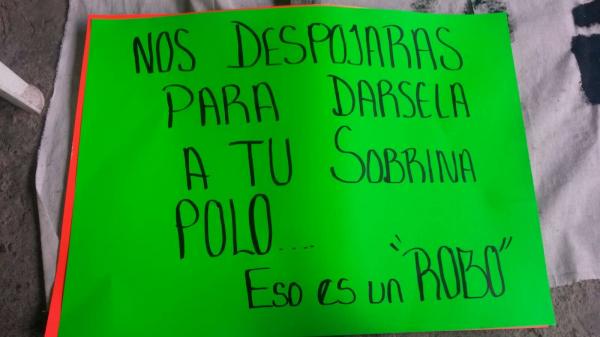 NOS DESPOJARAS
PARA DARSELA
A TU SOBRINA
POLO....
Eso es un "ROBO"